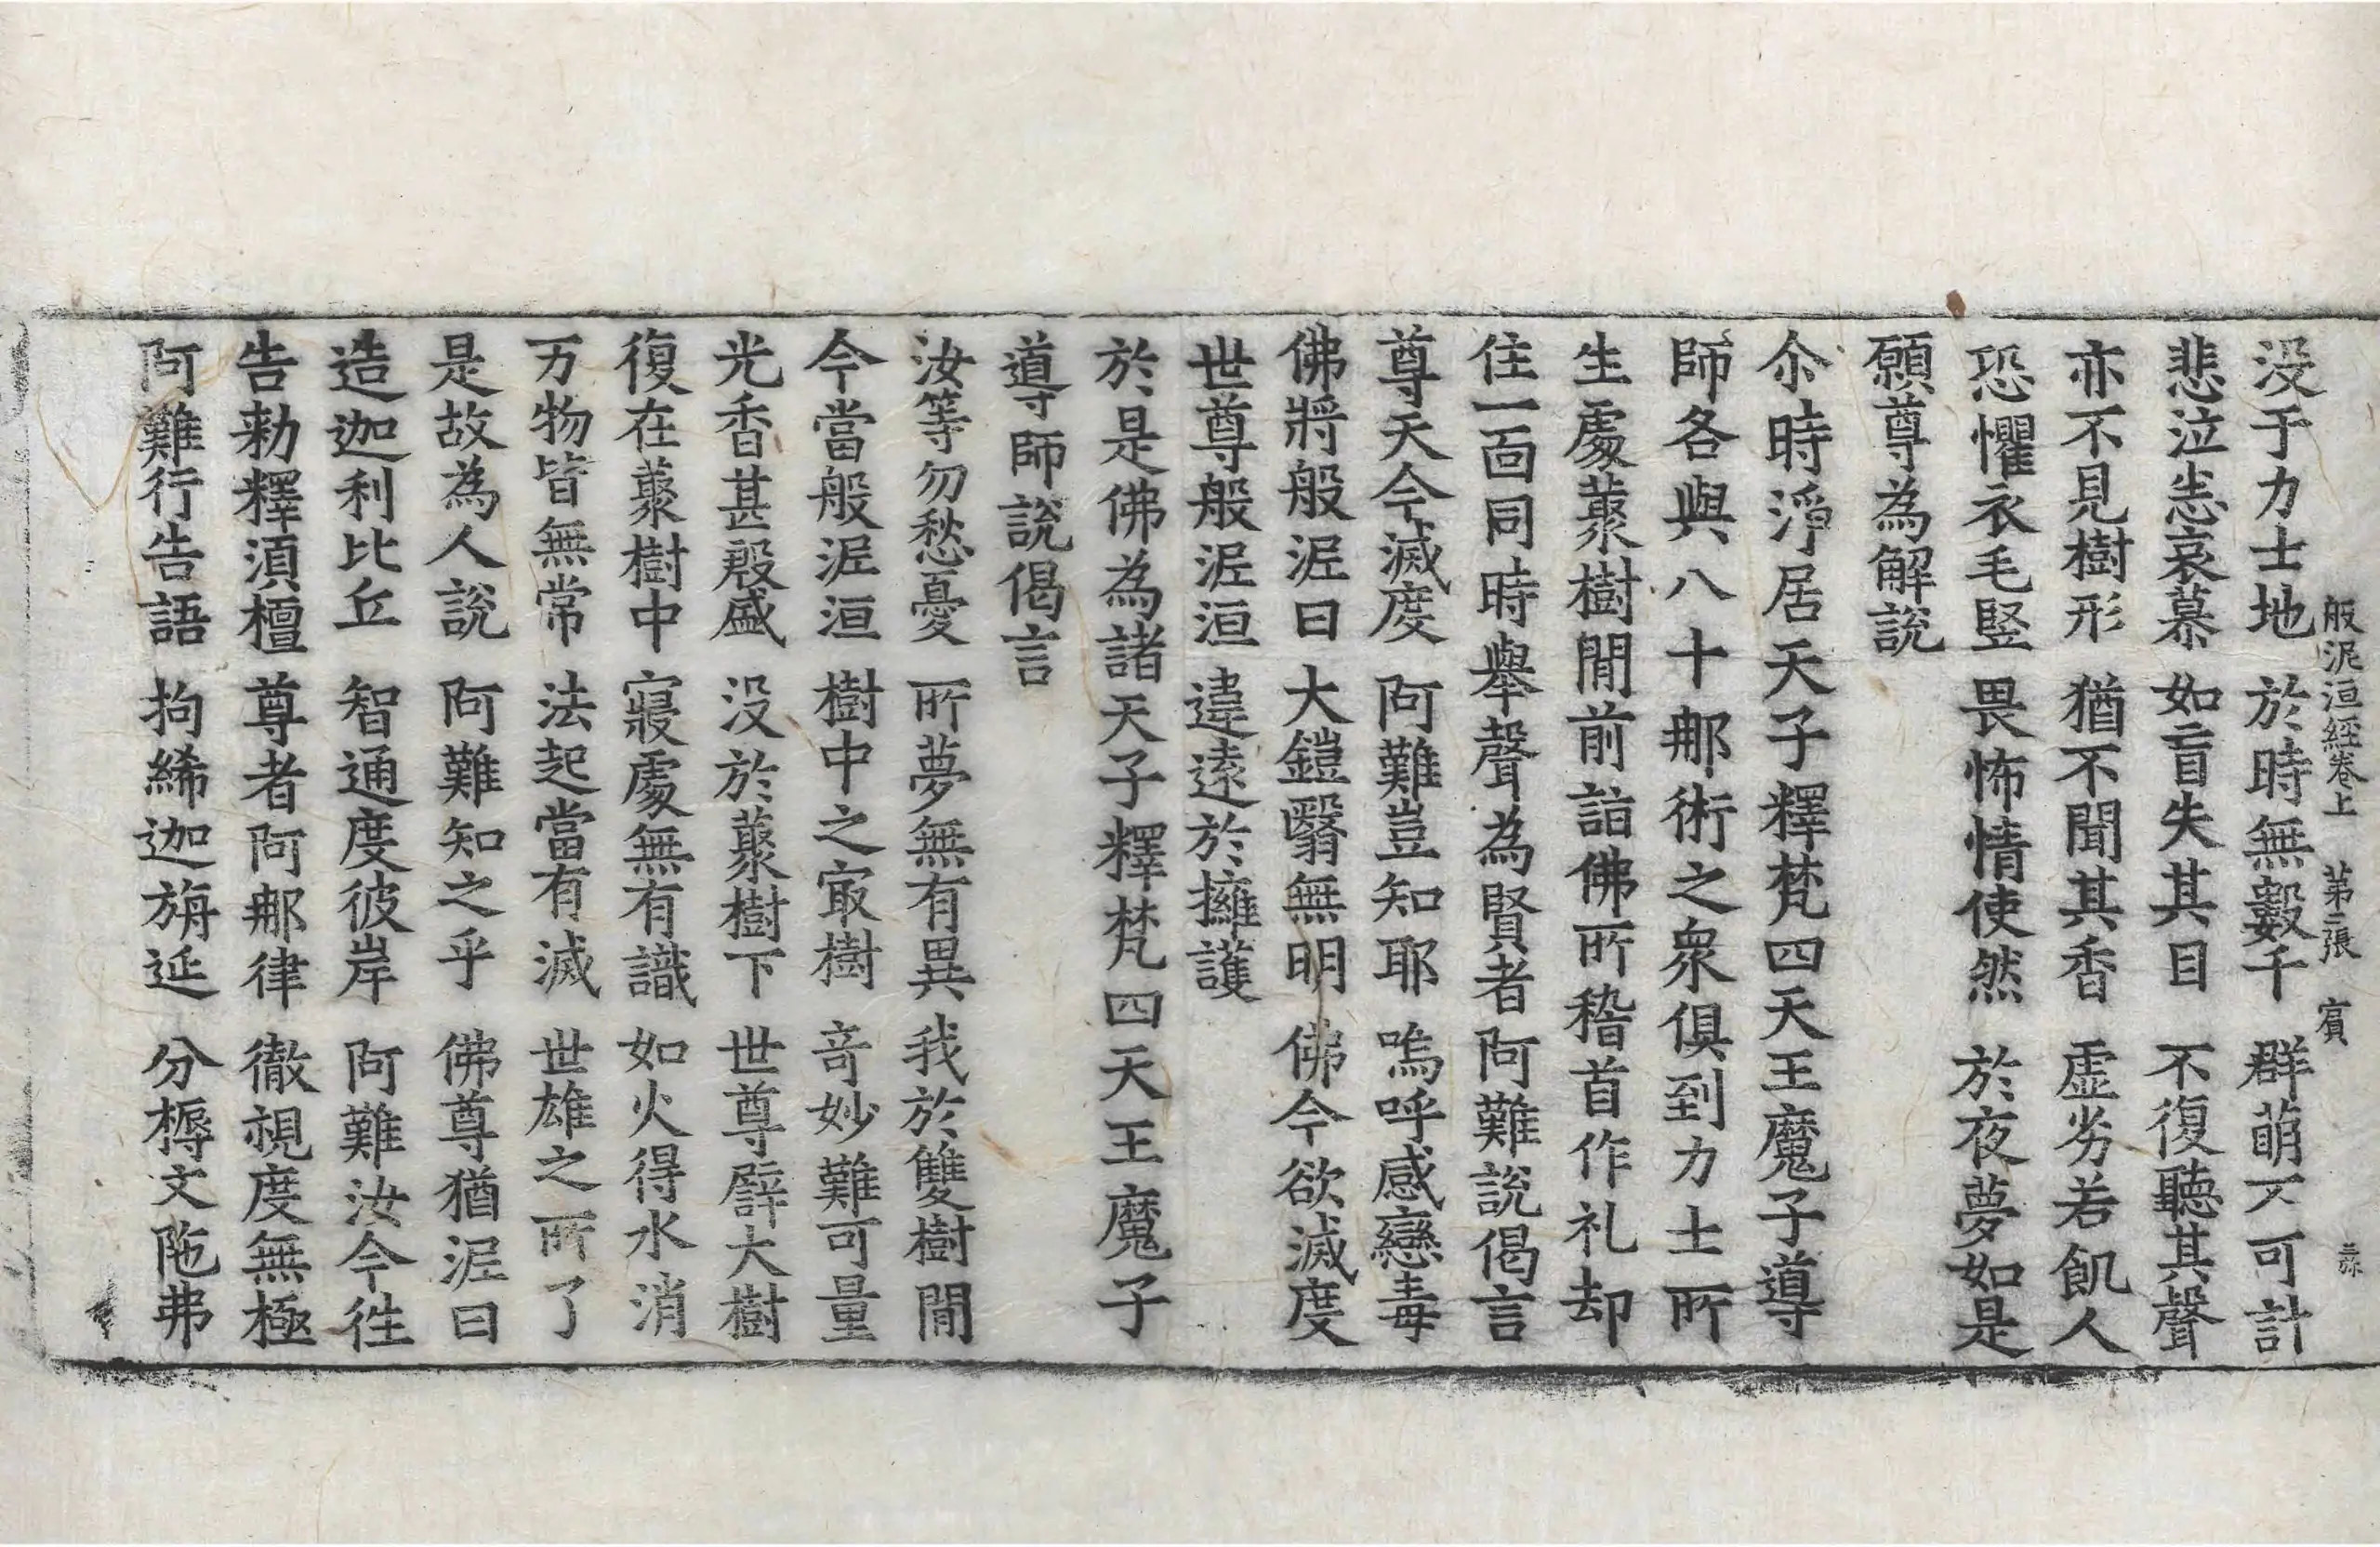 般泥洹經卷上 第二張 賔
没于力士地 於時無數千 群萌不可計
悲泣恚哀慕 如盲失其目 不復聽其聲
亦不見樹形 猶不聞其香 虛劣若飢人
恐懼衣毛竪 畏怖情使然 於夜夢如是
願尊為解說
尒時淨居天子釋梵四天王魔子導
師各與八十那術之衆俱到力士所
生處藂樹間前詣佛所稽首作礼却
住一面同時舉聲為賢者阿難說偈言
尊天今滅度 阿難豈知耶 嗚呼感戀毒
佛將般泥曰 大鎧翳無明 佛今欲滅度
世尊般泥洹 違遠於擁護
於是佛為諸天子釋梵四天王魔子
導師說偈言
汝等勿愁憂 所夢無有異 我於雙樹間
今當般泥洹 樹中之㝡樹 奇妙難可量
光香甚殷盛 没於藂樹下 世尊辟大樹
復在藂樹中 寢處無有識 如火得水消
万物皆無常 法起當有滅 世雄之所了
是故為人說 阿難知之乎 佛尊猶泥曰
造迦利比丘 智通度彼岸 阿難汝今徃
告勑釋湏檀 尊者阿那律 徹視度無極
阿難行告語 拘絺迦旃延 分耨文陁弗